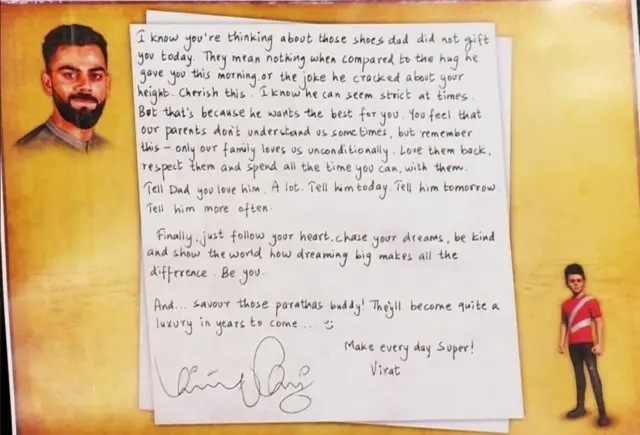 I know you're thinking about those shoes dad did not gift
you today. They mean nothing when compared to the hug he
gave you this morning or the joke he cracked about your
height. Cherish this. I know he can seem strict at times.
But that's because he wants the best for you. You feel that
our parents don't understand us sometimes, but remember
this - only our family loves us unconditionally. Love them back,
respect them and spend all the time you can, with them.
Tell Dad you love him. A lot. Tell him today. Tell him tomorrow.
Tell him more often.
Finally, just follow your heart, chase your dreams, be kind
and show the world how dreaming big makes all the
difference. Be you.
And... savour those parathas buddy! They'll become quite a
luxury in years to come... 
Make every day Super!
Virat